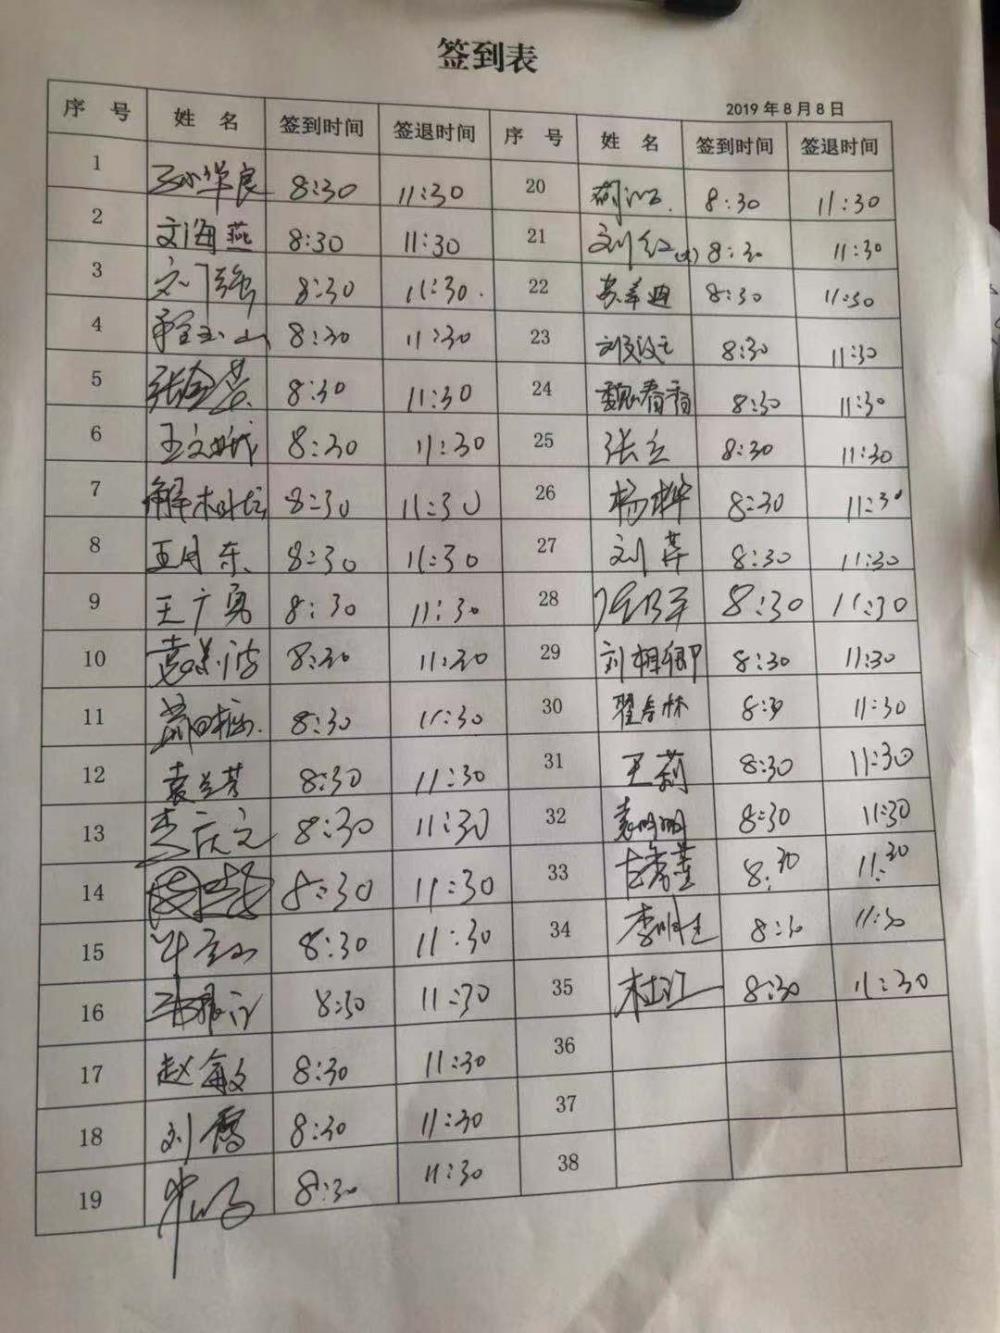 签到表
2019年8月8日
序 号 姓 名 签到时间 签退时间 序 号 姓 名 签到时间 签退时间
1 8:30 11:30 20 8:30 11:30
2 文海燕 8:30 11:30 21 刘红(大) 8:30 11:30
3 8:30 11:30. 22 8:30 11:30
4 程玉山 8:30 11:30 23 8:30 11:30
5 8:30 11:30 24 魏春香 8:30 11:30
6 8:30 11:30 25 张立 8:30 11:30
7 8:30 11:30 26 杨桦 8:30 11:30
8 王月东 8:30 11:30 27 刘萍 8:30 11:30
9 王广勇 8:30 11:30 28 8:30 11:30
10 8:30 11:30 29 刘相卿 8:30 11:30
11 8:30 11:30 30 8:30 11:30
12 袁兰芳 8:30 11:30 31 王莉 8:30 11:30
13 李庆文 8:30 11:30 32 袁明明 8:30 11:30
14 8:30 11:30 33 8:30 11:30
15 8:30 11:30 34 8:30 11:30
16 8:30 11:30 35 杜江 8:30 11:30
17 赵敏 8:30 11:30 36
18 刘霞 8:30 11:30 37
19 8:30 11:30 38